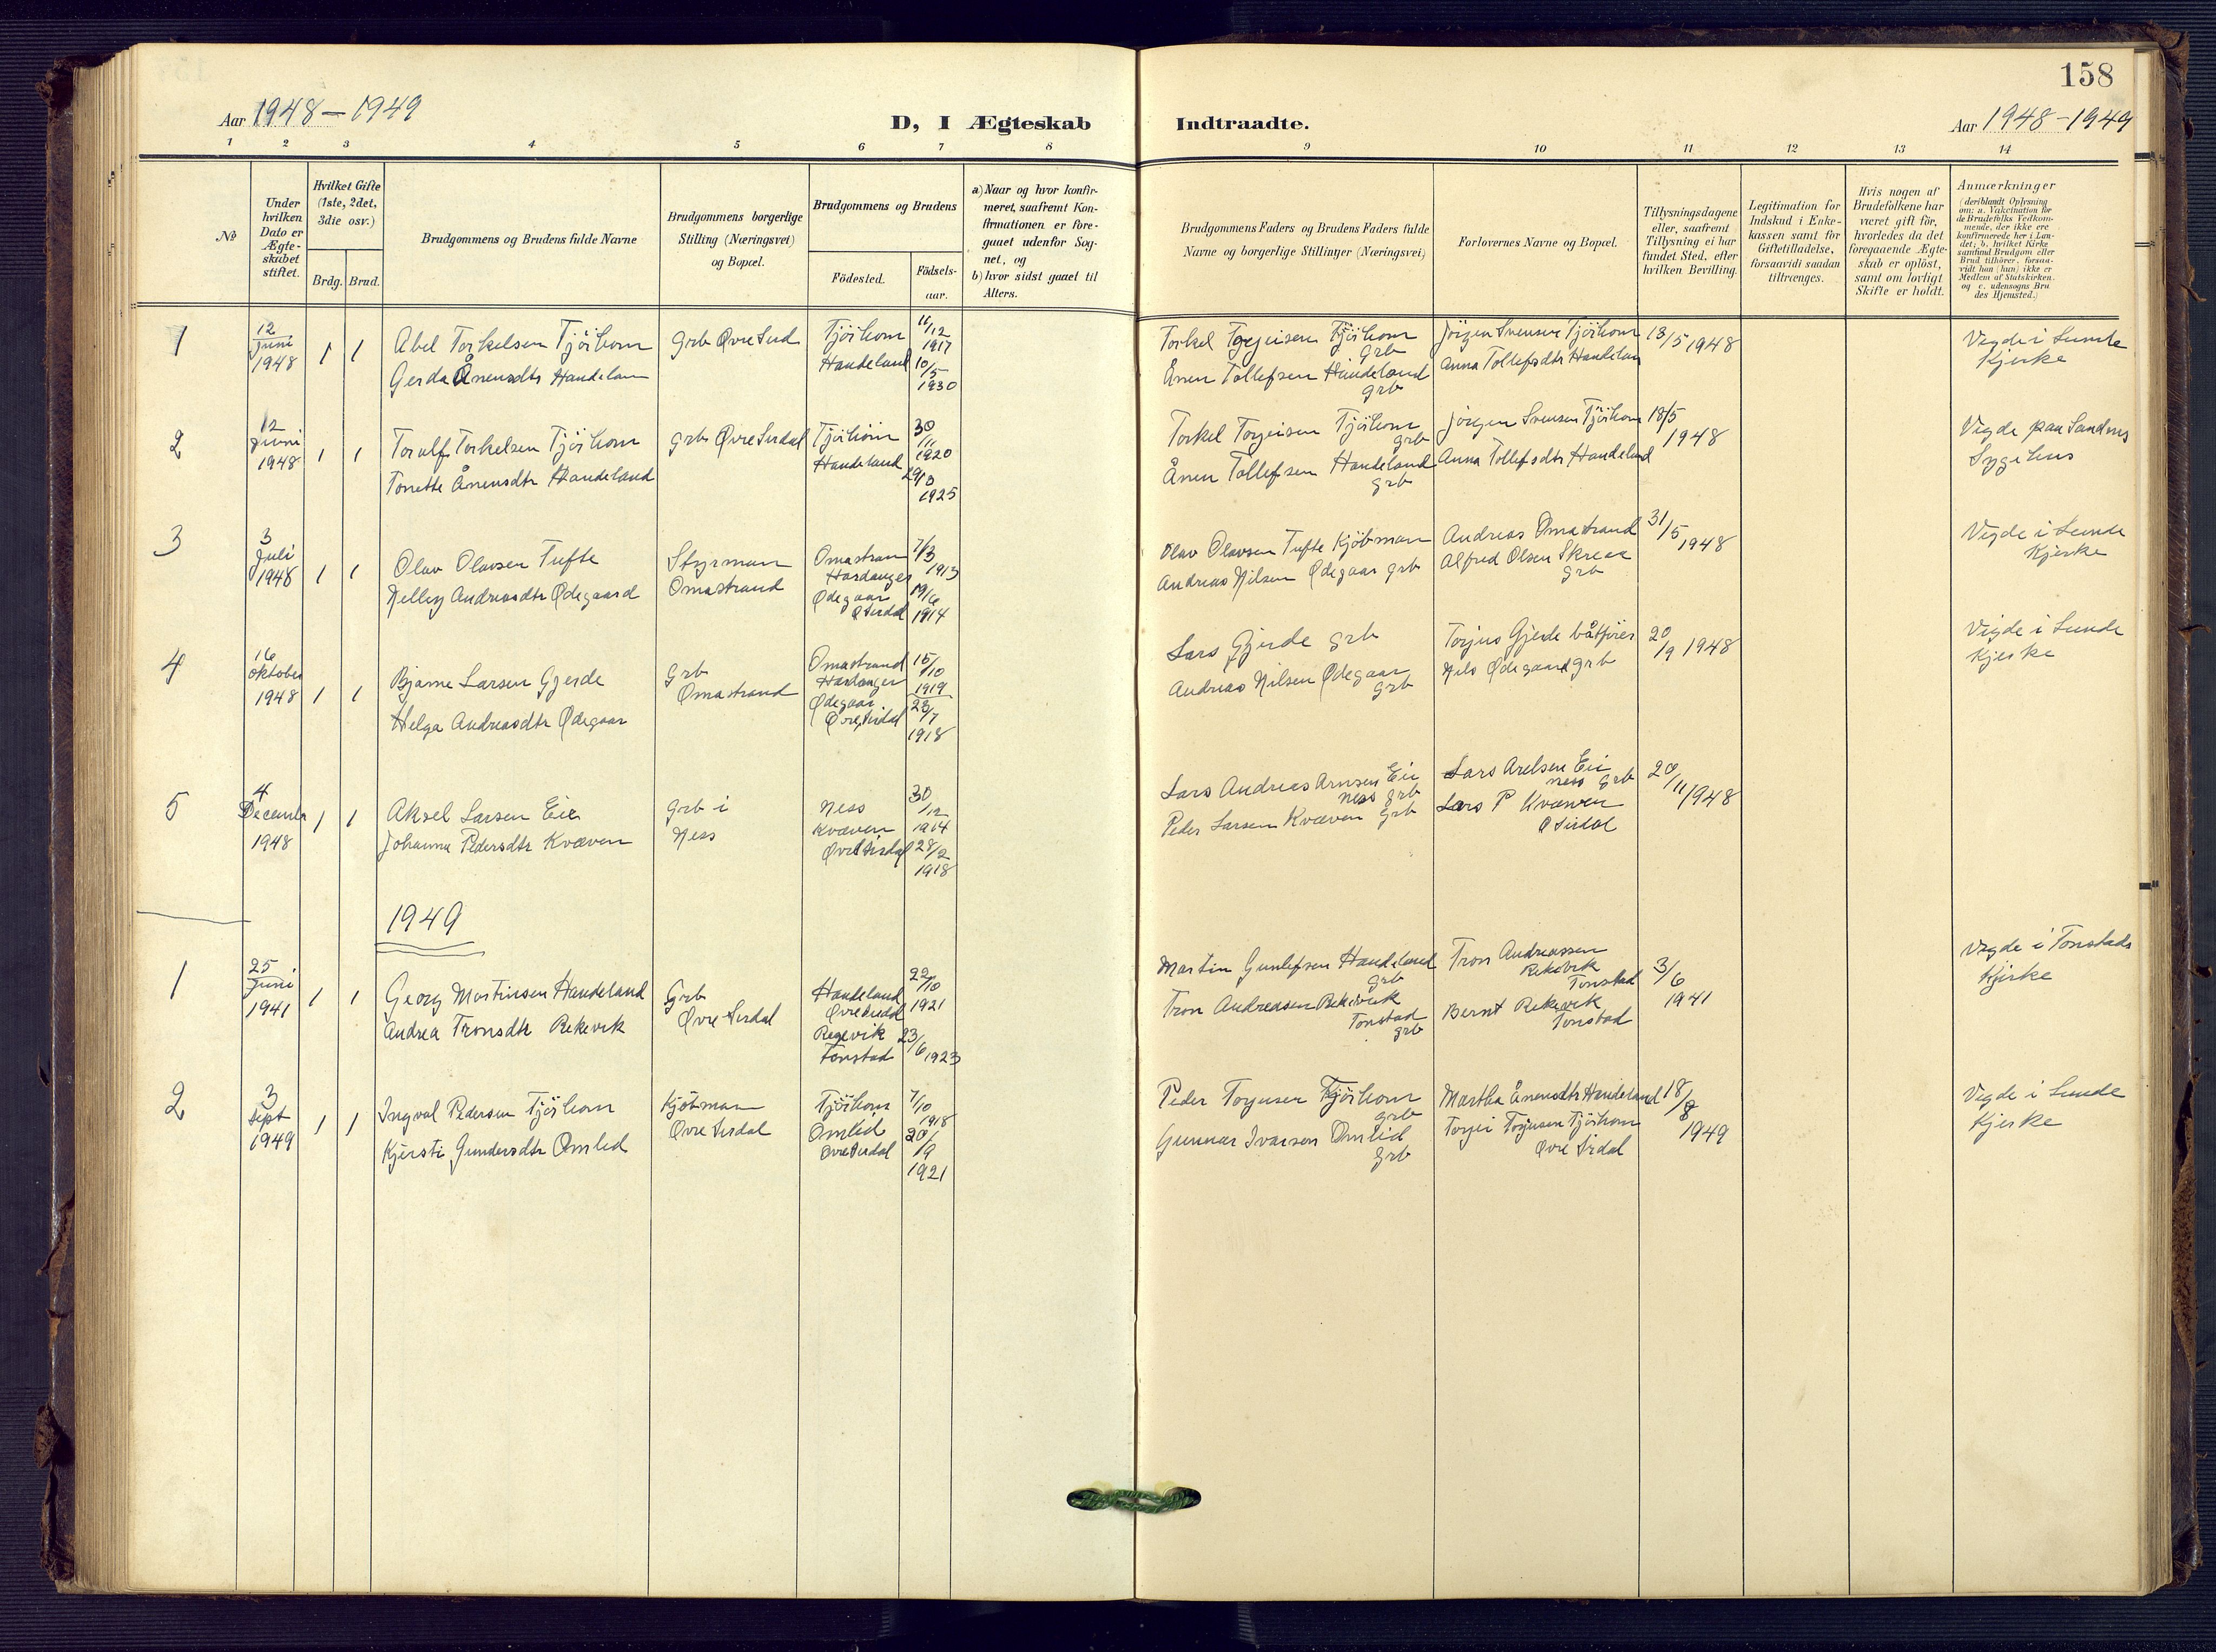 158
Aar 1948 — 1949
D, I Ægteskab Indtraadte.
Aar 1948 - 1949
1 2 3 4 5 6 7 8 9 10 11 12 13 14
No
Under hvilken Dato er Ægte-skabet stiftet.
Hvilket Gifte (1ste, 2det, 3die osv.)
Brdg. Brud.
Brudgommens og Brudens fulde Navne
Brudgommens borgerlige Stilling (Næringsvei) og Bopæl.
Brudgommens og Brudens
Födested.
Födsels-aar.
a) Naar og hvor konfir-meret, saafremt Kon-firmationen er fore-gaaet udenfor Sog-net, og
b) hvor sidst gaaet til Alters.
Brudgommens Faders og Brudens Faders fulde Navne og borgerlige Stillinger (Næringsvei)
Forlovernes Navne og Bopæl.
Tillysningsdagene eller, saafremt Tillysning ei har fundet Sted, efter hvilken Bevilling.
Legitimation for Indskud i Enke-kassen samt for Giftetilladelse, forsaavidt saadan tiltrænges.
Hvis nogen af Brudefolkene har været gift för, hvorledes da det foregaaende Ægte-skab er oplöst, samt om lovligt Skifte er holdt.
Anmærkninger
(deriblandt Oplysning om: a. Vakcination for de Brudefolks Vedkom-mende, der ikke ere konfirmerede her i Lan-det; b. hvilket Kirke samfund Brudgom eller Brud tilhörer, forsaa-vidt han (hun) ikke er Medlem af Statskirken. og c. udensogns Bru des Hjemsted.)
1
12 Juni 1948
1 1
Abel Torkelsen Tjörhom
Gerda Ånensdtr Handelan
Grb Øvre Sird
Tjörhom 11/12 1917
Handeland 10/5 1930
Torkel Torgeirsen Tjörhom Grb
Ånen Tollefsen Handeland grb
Jörgen Svensen Tjörhom
Anna Tollefsdtr Handelan
18/5 1948
Vigde i Lunde Kjerke
2
12 Juni 1948
1 1
Torulf Torkelsen Tjörhom
Tonette Ånensdtr Handeland
grb Øvre Sirdal
Tjörhom 30/11 1920
Handeland 1925
Torkel Torgeirsen Tjörhom grb
Ånen Tollefsen Handeland grb
Jörgen Svensen Tjörhom
Anna Tollefsdtr Handeland
18/5 1948
Vigde paa Sandnes Sygehus
3
3 Juli 1948
1 1
Olav Olavsen Tufte
Nelly Andreasdtr Ødegaard
Styrman
Omastrand
Omastran Hardanger 7/3 1913
Ødegaar Ø Sirdal 19/6 1914
Olav Olavsen Tufte Kjöbman
Andreas Nilsen Ødegaar grb
Andreas Omastrand
Alfred Olsen Skreaa grb
31/5 1948
Vigde i Lunde Kjerke
4
16 Oktober 1948
1 1
Bjarne Larsen Gjerde
Helga Andreasdtr Ødegaar
Grb
Omastrand
Omastrand Hardanger 15/10 1919
Ødegaar Øvre Sirdal 23/7 1918
Lars Gjerde grb
Andreas Nilsen Ødegaar grb
Torjus Gjerde båtförer
Nils Ødegaard grb
20/9 1948
Vigde i Lunde Kjerke
5
4 December 1948
1 1
Aksel Larsen Eie
Johanna Pedersdtr Kvæven
Grb i
Ness
Ness 30/12 1914
Kvæven Øvre Sirdal 28/2 1918
Lars Andreas Arnsen Eie ness grb
Peder Larsen Kvæven Grb
Lars Axelsen Eie ness grb
Lars P Kvæven Ø Sirdal
20/11 1948
1949
1
25 Juni 1941
1 1
Georg Martinsen Handeland
Andrea Tronsdtr Rekevik
Grb
Øvre Sirdal
Handeland Øvre Sirdal 22/10 1921
Regevik Tonstad 23/6 1923
Martin Gunlefsen Handeland grb
Tron Andreasen Rekevik Tonstad grb
Tron Andreassen Rekevik Tonstad
Bernt Rekevik Tonstad
3/6 1941
Vigde i Tonstads Kjirke
2
3 Sept 1949
1 1
Ingval Pedersen Tjörhom
Kjersti Gundersdtr Omlid
Kjöbman
Øvre Sirdal
Tjörhom 7/10 1918
Omlid Øvre Sirdal 20/9 1921
Peder Torjusen Tjörhom grb
Gunnar Ivarsen Omlid Grb
Martha Ånensdtr Handeland
Torjei Torjusen Tjörhom Øvre Sirdal
18/8 1949
Vigde i Lunde Kjerke